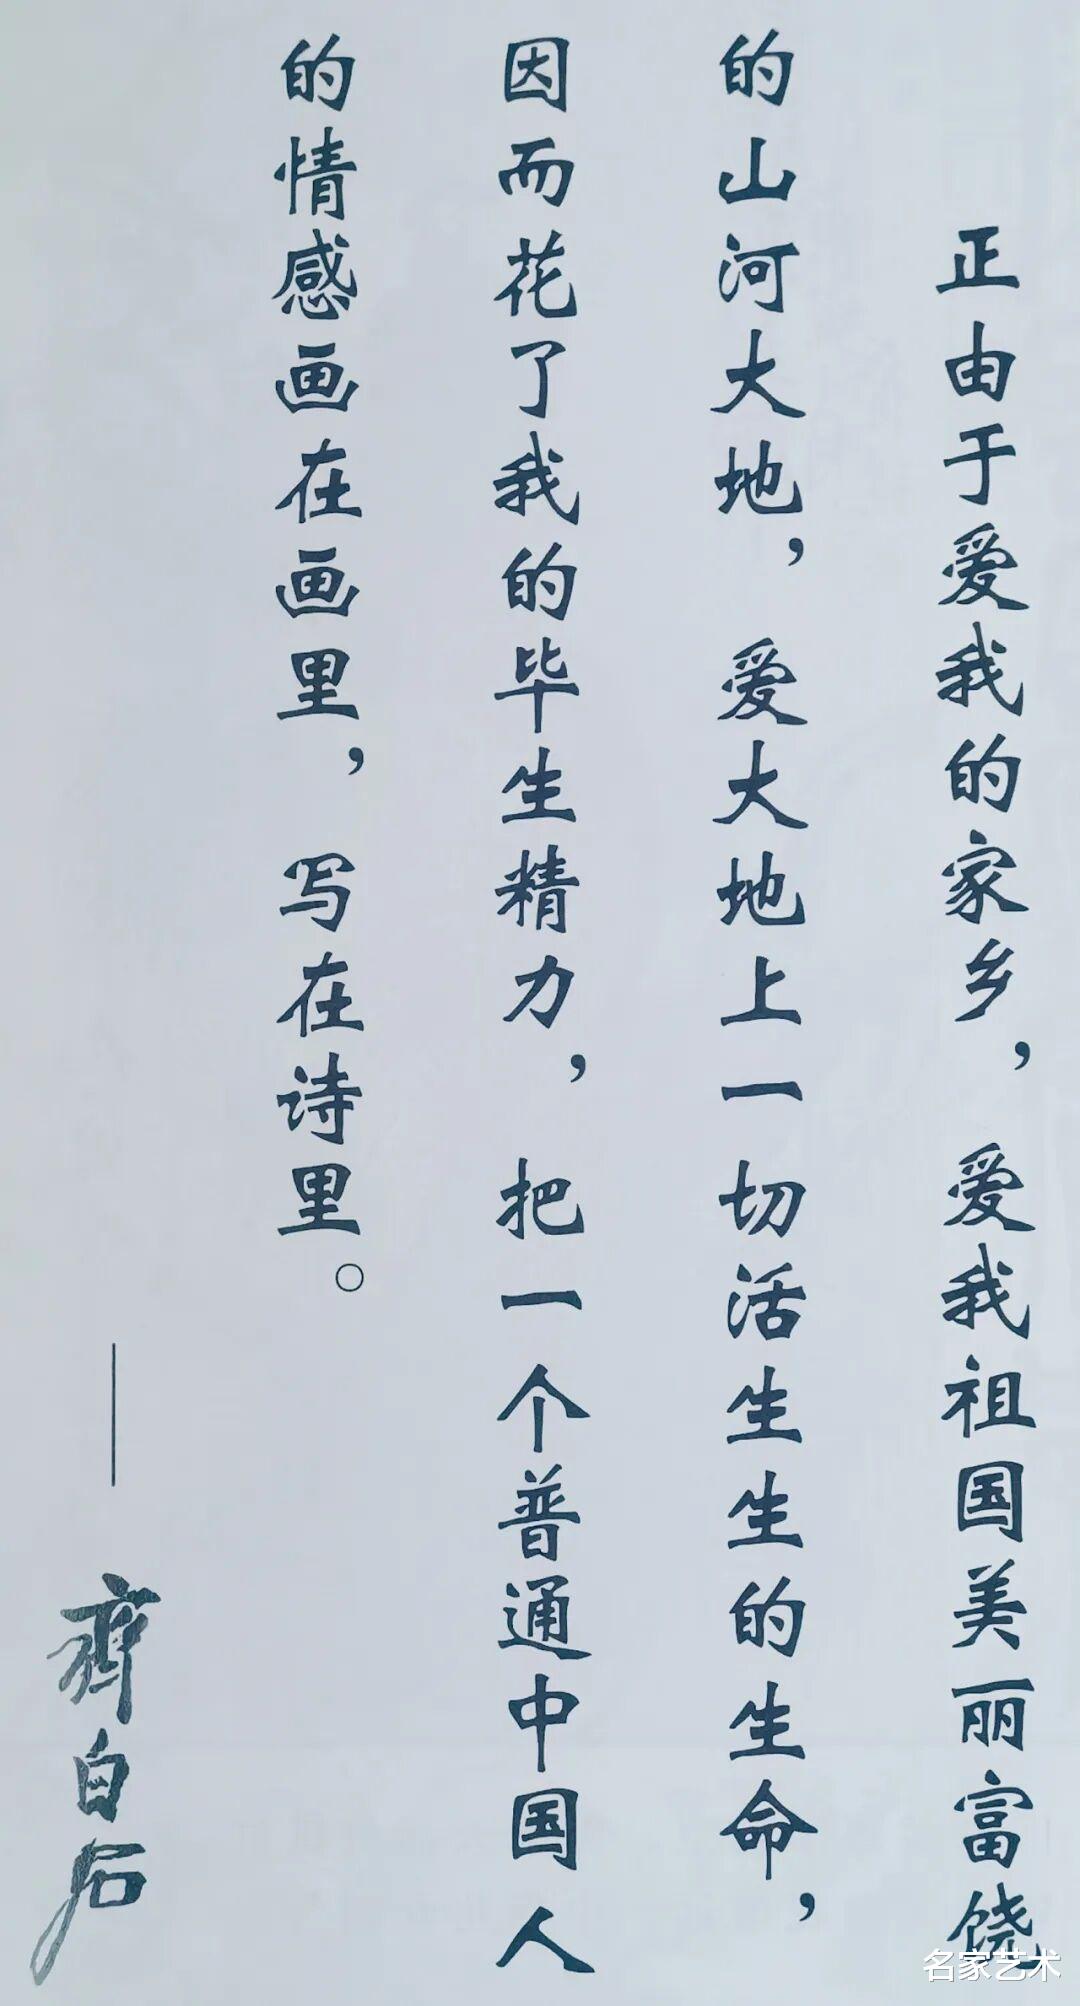 正由于爱我的家乡，爱我祖国美丽富饶
的山河大地，爱大地上一切活生生的生命，
因而花了我的毕生精力，把一个普通中国人
的情感画在画里，写在诗里。
——齊白石
名家艺术